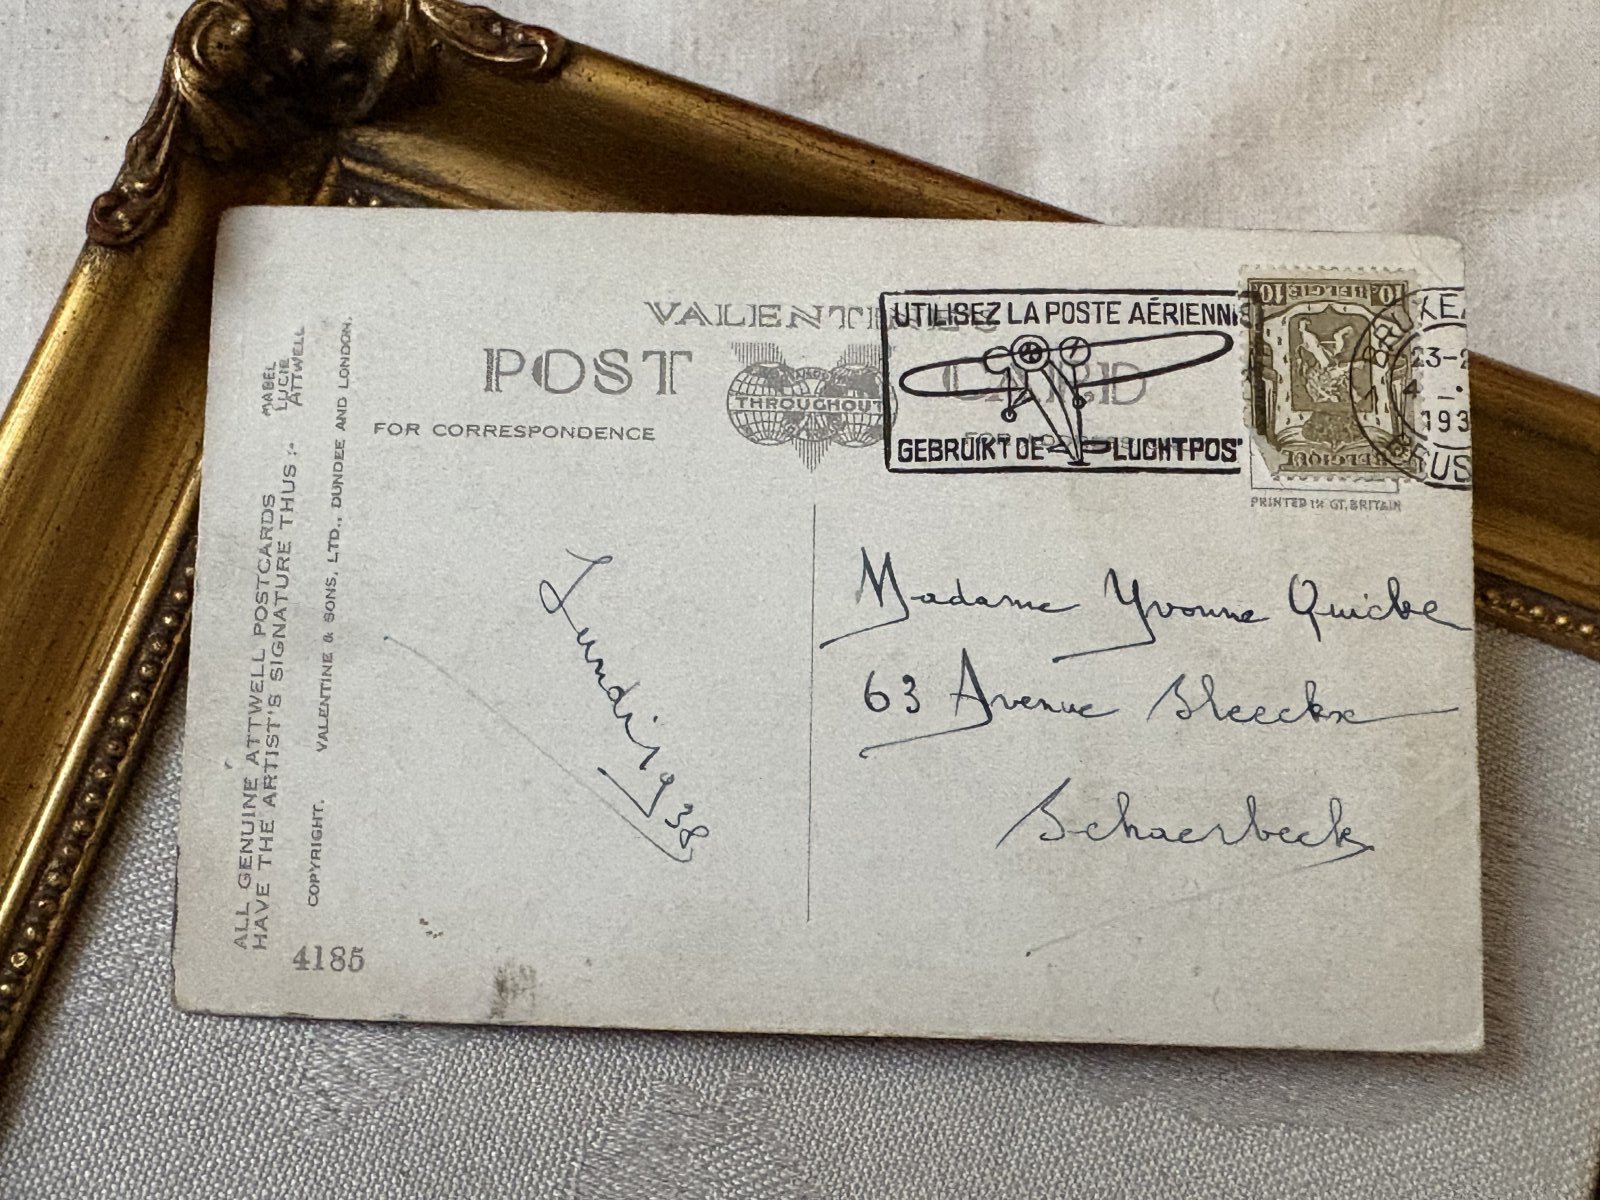 VALENTINE'S
POST CARD
THROUGHOUT
FOR CORRESPONDENCE
FOR ADDRESS
UTILISEZ LA POSTE AÉRIENNE
GEBRUIKT DE LUCHTPOS
10 BELGIE 10
BELGIQUE
23-
4
193
PRINTED IN GT. BRITAIN
ALL GENUINE ATTWELL POSTCARDS
HAVE THE ARTIST'S SIGNATURE THUS :-
MABEL
LUCIE
ATTWELL
COPYRIGHT. VALENTINE & SONS, LTD., DUNDEE AND LONDON.
4185
Lundi 1938
Madame Yvonne Quicke
63 Avenue Sleeckx
Schaerbeek